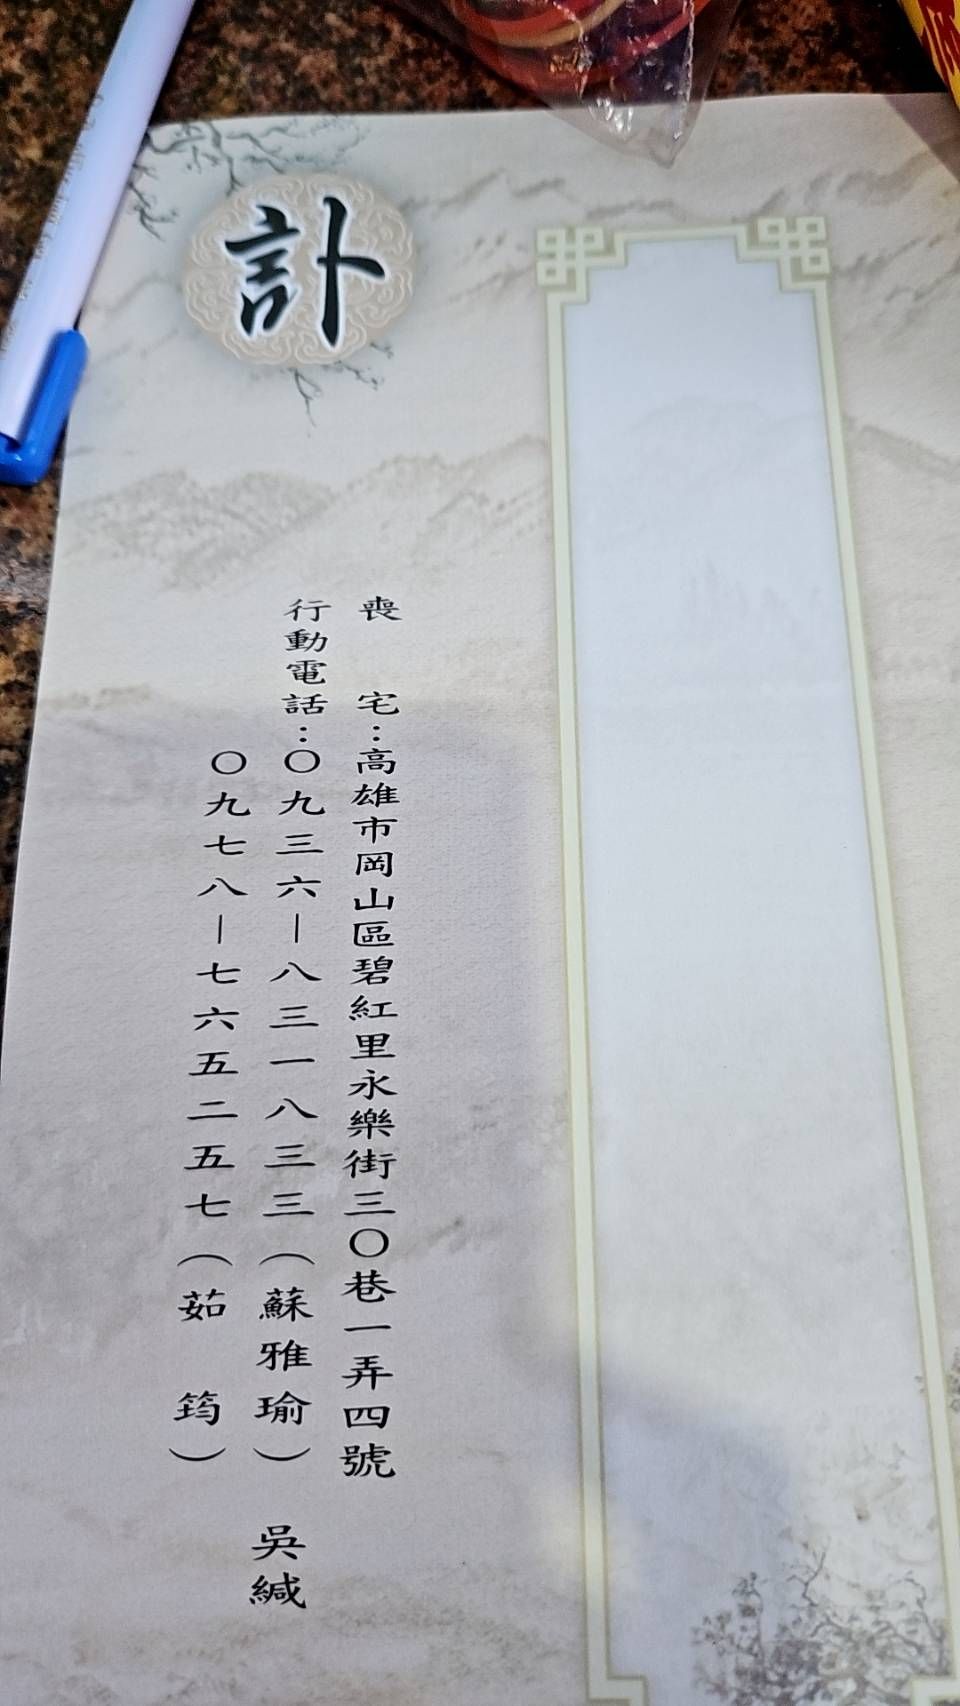 訃
喪宅：高雄市岡山區碧紅里永樂街三〇巷一弄四號
行動電話：〇九三六－八三一八三三（蘇雅瑜）
〇九七八－七六五二五七（茹筠）
吳緘